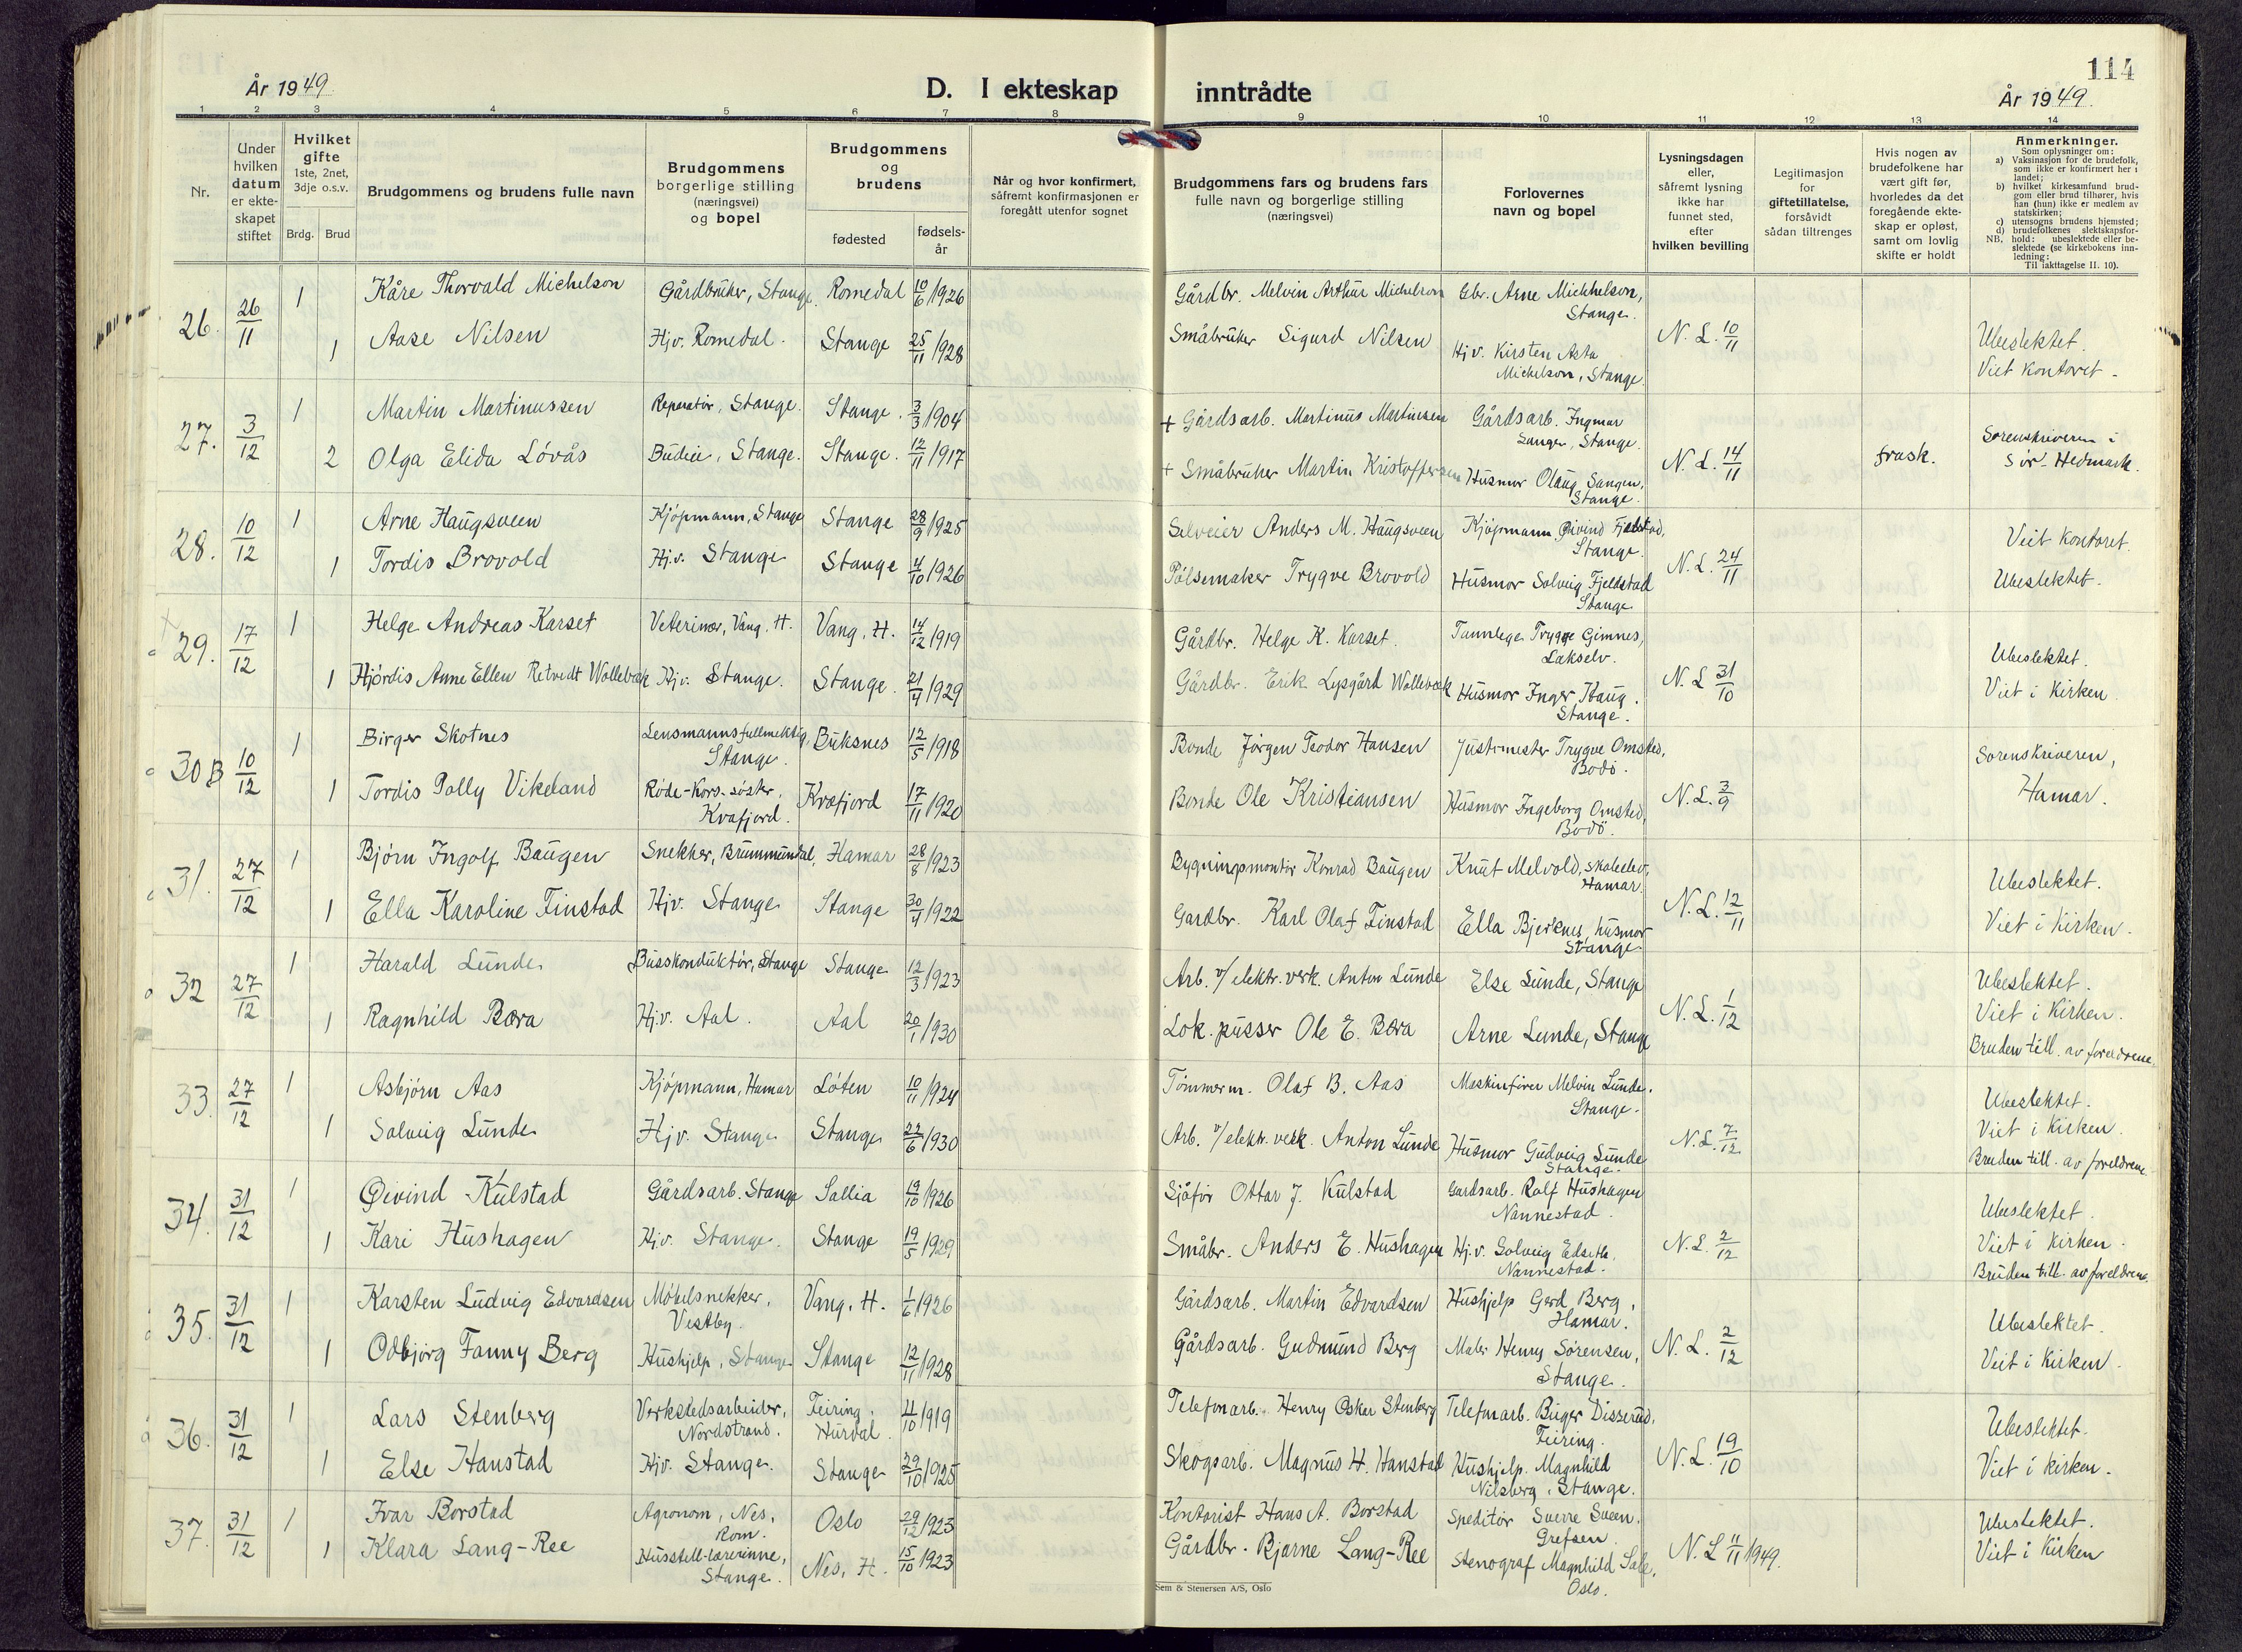 114
År 1949.
D. I ekteskap inntrådte
År 1949.
1 2 3 4 5 6 7 8 9 10 11 12 13 14
Nr.
Under hvilken datum er ekteskapet stiftet
Hvilket gifte 1ste, 2net, 3dje o.s.v.
Brdg. Brud
Brudgommens og brudens fulle navn
Brudgommens borgerlige stilling (næringsvei) og bopel
Brudgommens og brudens
fødested
fødselsår
Når og hvor konfirmert, såfremt konfirmasjonen er foregått utenfor sognet
Brudgommens fars og brudens fars fulle navn og borgerlige stilling (næringsvei)
Forlovernes navn og bopel
Lysningsdagen eller, såfremt lysning ikke har funnet sted, efter hvilken bevilling
Legitimasjon for giftetillatelse, forsåvidt sådan tiltrenges
Hvis nogen av brudefolkene har vært gift før, hvorledes da det foregående ekteskap er opløst, samt om lovlig skifte er holdt
Anmerkninger.
Som oplysninger om:
a) Vaksinasjon for de brudefolk, som ikke er konfirmert her i landet;
b) hvilket kirkesamfund brudgom eller brud tilhører, hvis han (hun) ikke er medlem av statskirken;
c) utensogns brudens hjemsted;
d) brudefolkenes slektskapsforhold: ubeslektede eller beslektede (se kirkebokens innledning;
NB,
Til iakttagelse II. 10).
26. 26/11 1 Kåre Thorvald Michelson Gårdbruker, Stange. Romedal 10/6 1926 Gårdbr. Melvin Arthur Michelson Gbr. Arne Mickhelson, Stange.
1 Aase Nilsen Hjv. Romedal. Stange 25/11 1928 Småbruker Sigurd Nilsen Hjv. Kirsten Asta Michelson, Stange. N. L. 10/11 Ubeslektet. Viet kontoret.
27. 3/12 1 Martin Martinussen Reparatør, Stange. Stange. 3/3 1904 + Gårdsarb. Martinus Martinsen Gårdsarb. Ingmar Sangen, Stange.
2 Olga Elida Lövås Budeie, Stange. Stange. 12/11 1917 + Småbruker Martin Kristoffersen Husmor Olaug Sangen, Stange. N. L. 14/11 frask. Sorenskriveren i Sør-Hedmark.
28. 10/12 1 Arne Haugsveen Kjöpmann, Stange Stange 28/9 1925 Selveier Anders M. Haugsveen Kjöpmann Øivind Fjelstad, Stange.
1 Tordis Brovold Hjv. Stange Stange 4/10 1926 Pölsemaker Trygve Brovold Husmor Solveig Fjeldstad Stange. N. L. 24/11 Veit kontoret. Ubeslektet.
29. 17/12 1 Helge Andreas Karset Veterinær, Vang. H. Vang. H. 14/12 1919 Gårdbr. Helge K. Karset. Tannlege Trygve Gimnes, Lakselv.
1 Hjördis Anne Ellen Retvedt Wollebæk Hjv. Stange. Stange. 21/4 1929 Gårdbr. Erik Lysgård Wollebæk Husmor Inger Haug. Stange. N. L 31/10 Ubeslektet. Viet i Kirken
30 B 10/12 1 Birger Skotnes Lensmannsfullmektig, Stange. Buksnes 12/5 1918 Bonde Jörgen Teodor Hansen Justermester Trygve Omsted, Bodö.
1 Tordis Polly Vikeland Röde-Kors-söster, Kvæfjord. Kvæfjord 17/11 1920 Bonde Ole Kristiansen Husmor Ingeborg Omsted, Bodö. N. L. 3/9 Sorenskriveren, Hamar.
31. 27/12 1 Bjørn Ingolf Baugen Snekker, Brummundal, Hamar 28/8 1923 Bygningsmontör Konrad Baugen Knut Melvold, skoleelev, Hamar.
1 Ella Karoline Finstad Hjv. Stange Stange 30/4 1922 Gardbr. Karl Olaf Finstad Ella Bjerknes, husmor Stange. N. L. 12/11 Ubeslektet. Viet i Kirken.
32 27/12 1 Harald Lunde Busskonduktör, Stange Stange 12/3 1923 Arb. v/ elektr. verk. Anton Lunde Else Lunde, Stange
1 Ragnhild Bæra Hjv. Aal. Aal 20/1 1930 Lok. pusser Ole E. Bæra Arne Lunde, Stange N. L. 1/12 Ubeslektet. Viet i Kirken. Bruden till. av foreldrene.
33. 27/12 1 Asbjörn Aas Kjöpmann, Hamar Löten 10/11 1924 Tömmerm. Olaf B. Aas Maskinfører Melvin Lunde. Stange.
1 Solveig Lunde Hjv. Stange Stange 22/6 1930 Arb. v/elektr. verk. Anton Lunde Husmor Gudveig Lunde Stange. N. L. 7/12 Ubeslektet. Viet i Kirken. Bruden till. av foreldrene
34. 31/12 1 Øivind Kulstad Gårdsarb. Stange Sollia 19/10 1926 Sjåför Ottar J. Kulstad Gardsarb. Rolf Hushagen Nannestad.
1 Kari Hushagen Hjv. Stange. Stange 19/5 1929 Småbr. Anders E. Hushagen Hj.v. Solveig Edseth, Nannestad. N. L. 2/12 Ubeslektet. Viet i Kirken. Bruden till. av foreldrene.
35. 31/12 1 Karsten Ludvig Edvardsen Möbelsnekker, Vestby. Vang. H. 1/6 1926 Gårdsarb. Martin Edvardsen Hushjelp Gerd Berg, Hamar.
1 Odbjörg Fanny Berg Hushjelp, Stange Stange 12/11 1928 Gårdsarb. Gudmund Berg Maler Henry Sørensen, Stange. N. L. 2/12 Ubeslektet. Veit i Kirken.
36. 31/12 1 Lars Stenberg Verkstedsarbeider, Nordstrand. Feiring. Hurdal. 4/10 1919 Telefonarb. Henry Osker Stenberg Telefonarb. Birger Disserud, Feiring.
1 Else Hanstad Hjv. Stange. Stange 29/10 1925 Skogsarb. Magnus H. Hanstad Hushjelp. Magnhild Nilsberg, Stange. N. L. 19/10 Ubeslektet. Viet i kirken.
37. 31/12 1 Ivar Borstad Agronom, Nes, Rom. Oslo 29/12 1923 Kontorist Hans A. Borstad Speditör Sverre Sveen. Grefsen
1 Klara Lang-Ree Husstell-lærerinne, Stange. Nes, H. 15/10 1923 Gårdbr. Bjarne Lang-Ree Stenograf Magnhild Oslo. N. L 11/11 1949. Ubeslektet. Viet i Kirken
Sem & Stenersen A/S, Oslo